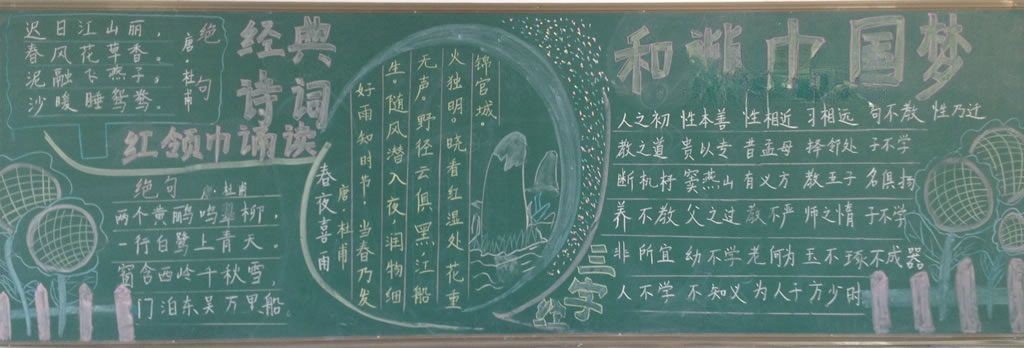 绝句
唐·杜甫
迟日江山丽，
春风花草香。
泥融飞燕子，
沙暖睡鸳鸯。
经典
诗词
红领巾诵读
绝句
杜甫
两个黄鹂鸣翠柳，
一行白鹭上青天。
窗含西岭千秋雪，
门泊东吴万里船。
春夜喜雨
唐·杜甫
好雨知时节，当春乃发
生。随风潜入夜，润物细
无声。野径云俱黑，江船
火独明。晓看红湿处，花重
锦官城。
三字
和谐中国梦
人之初 性本善 性相近 习相远 句不教 性乃迁
教之道 贵以专 昔孟母 择邻处 子不学
断机杼 窦燕山 有义方 教五子 名俱扬
养不教 父之过 教不严 师之惰 子不学
非所宜 幼不学 老何为 玉不琢 不成器
人不学 不知义 为人子 方少时